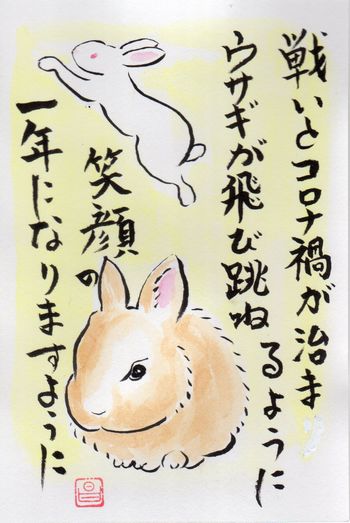 戦いとコロナ禍が治まり
ウサギが飛び跳ねるように
笑顔の
一年になりますように